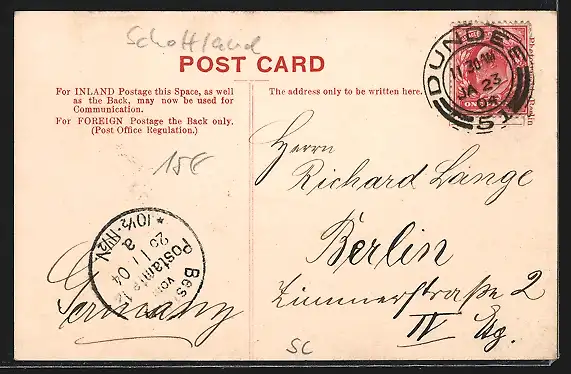 Schottland
POST CARD
For INLAND Postage this Space, as well
as the Back, may now be used for
Communication.
For FOREIGN Postage the Back only.
(Post Office Regulation.)
The address only to be written here.
DUNDEE
11.30 AM
JA 23
04
51
15€
Herrn
Richard Lange
Berlin
Zimmerstraße 2
IV Etg.
Germany
* 10½-11½V.
a
25 1 04
Postamte
vom
Best
SC